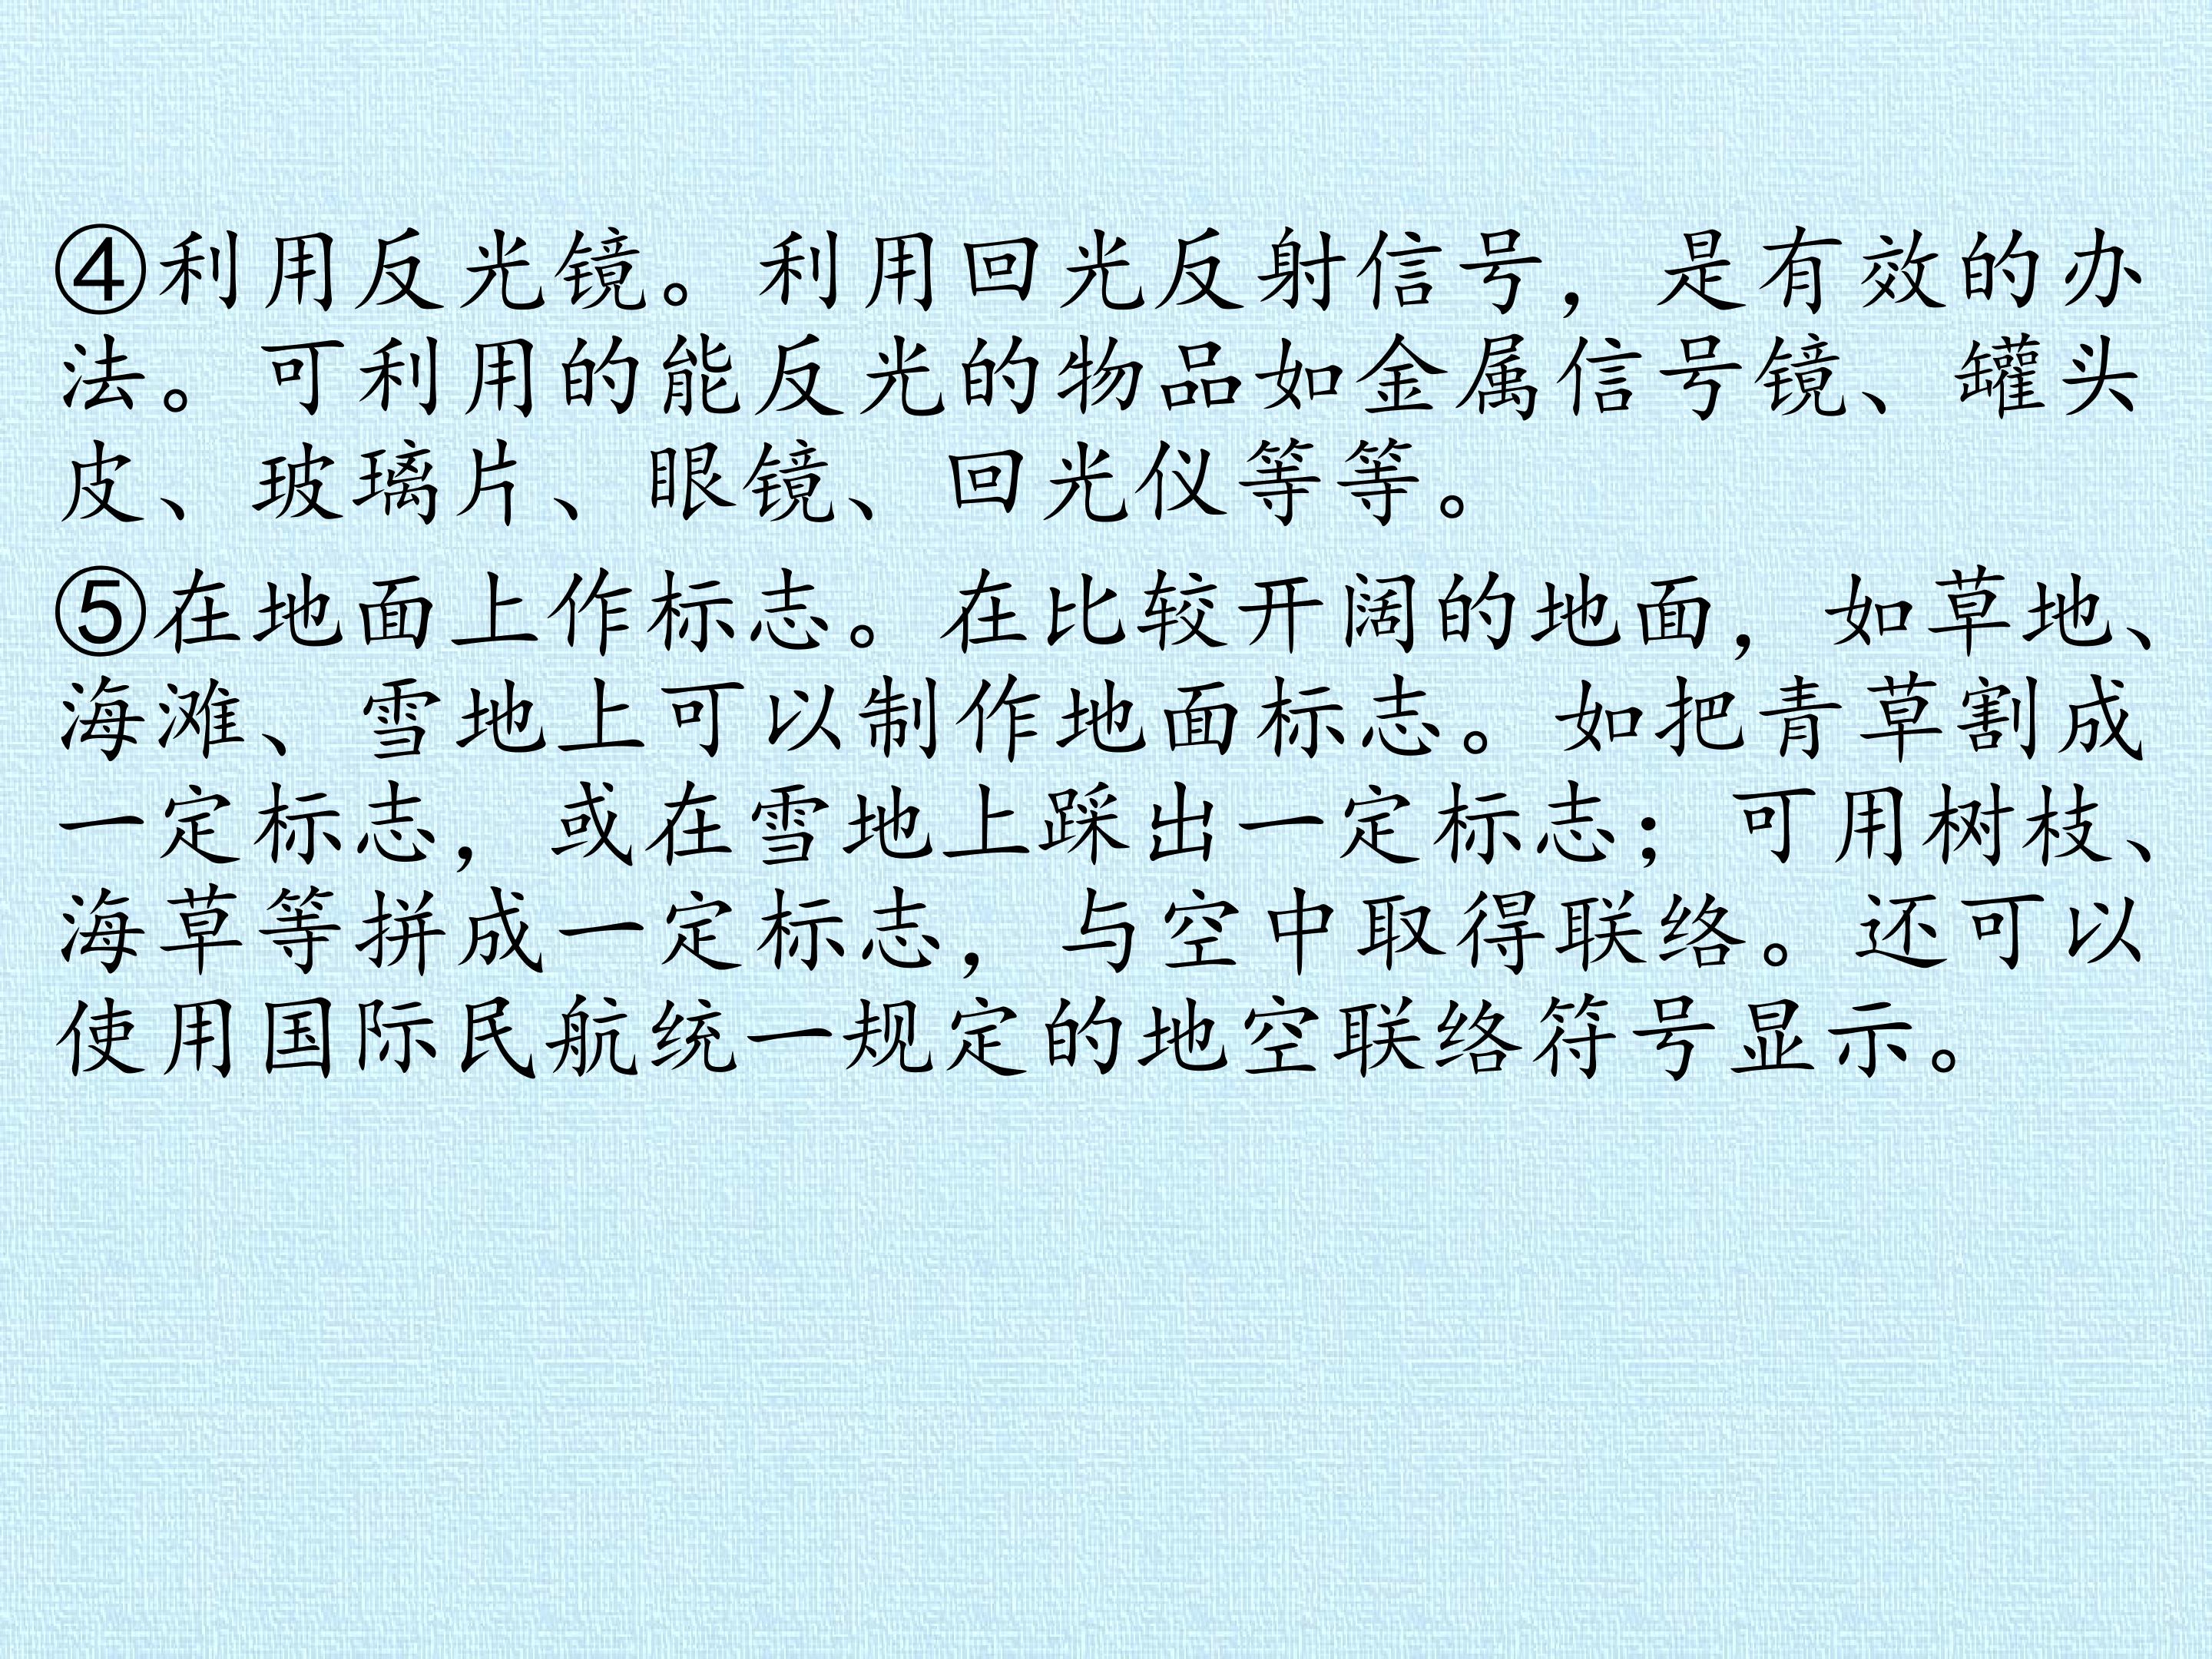 ④利用反光镜。利用回光反射信号，是有效的办
法。可利用的能反光的物品如金属信号镜、罐头
皮、玻璃片、眼镜、回光仪等等。
⑤在地面上作标志。在比较开阔的地面，如草地、
海滩、雪地上可以制作地面标志。如把青草割成
一定标志，或在雪地上踩出一定标志；可用树枝、
海草等拼成一定标志，与空中取得联络。还可以
使用国际民航统一规定的地空联络符号显示。